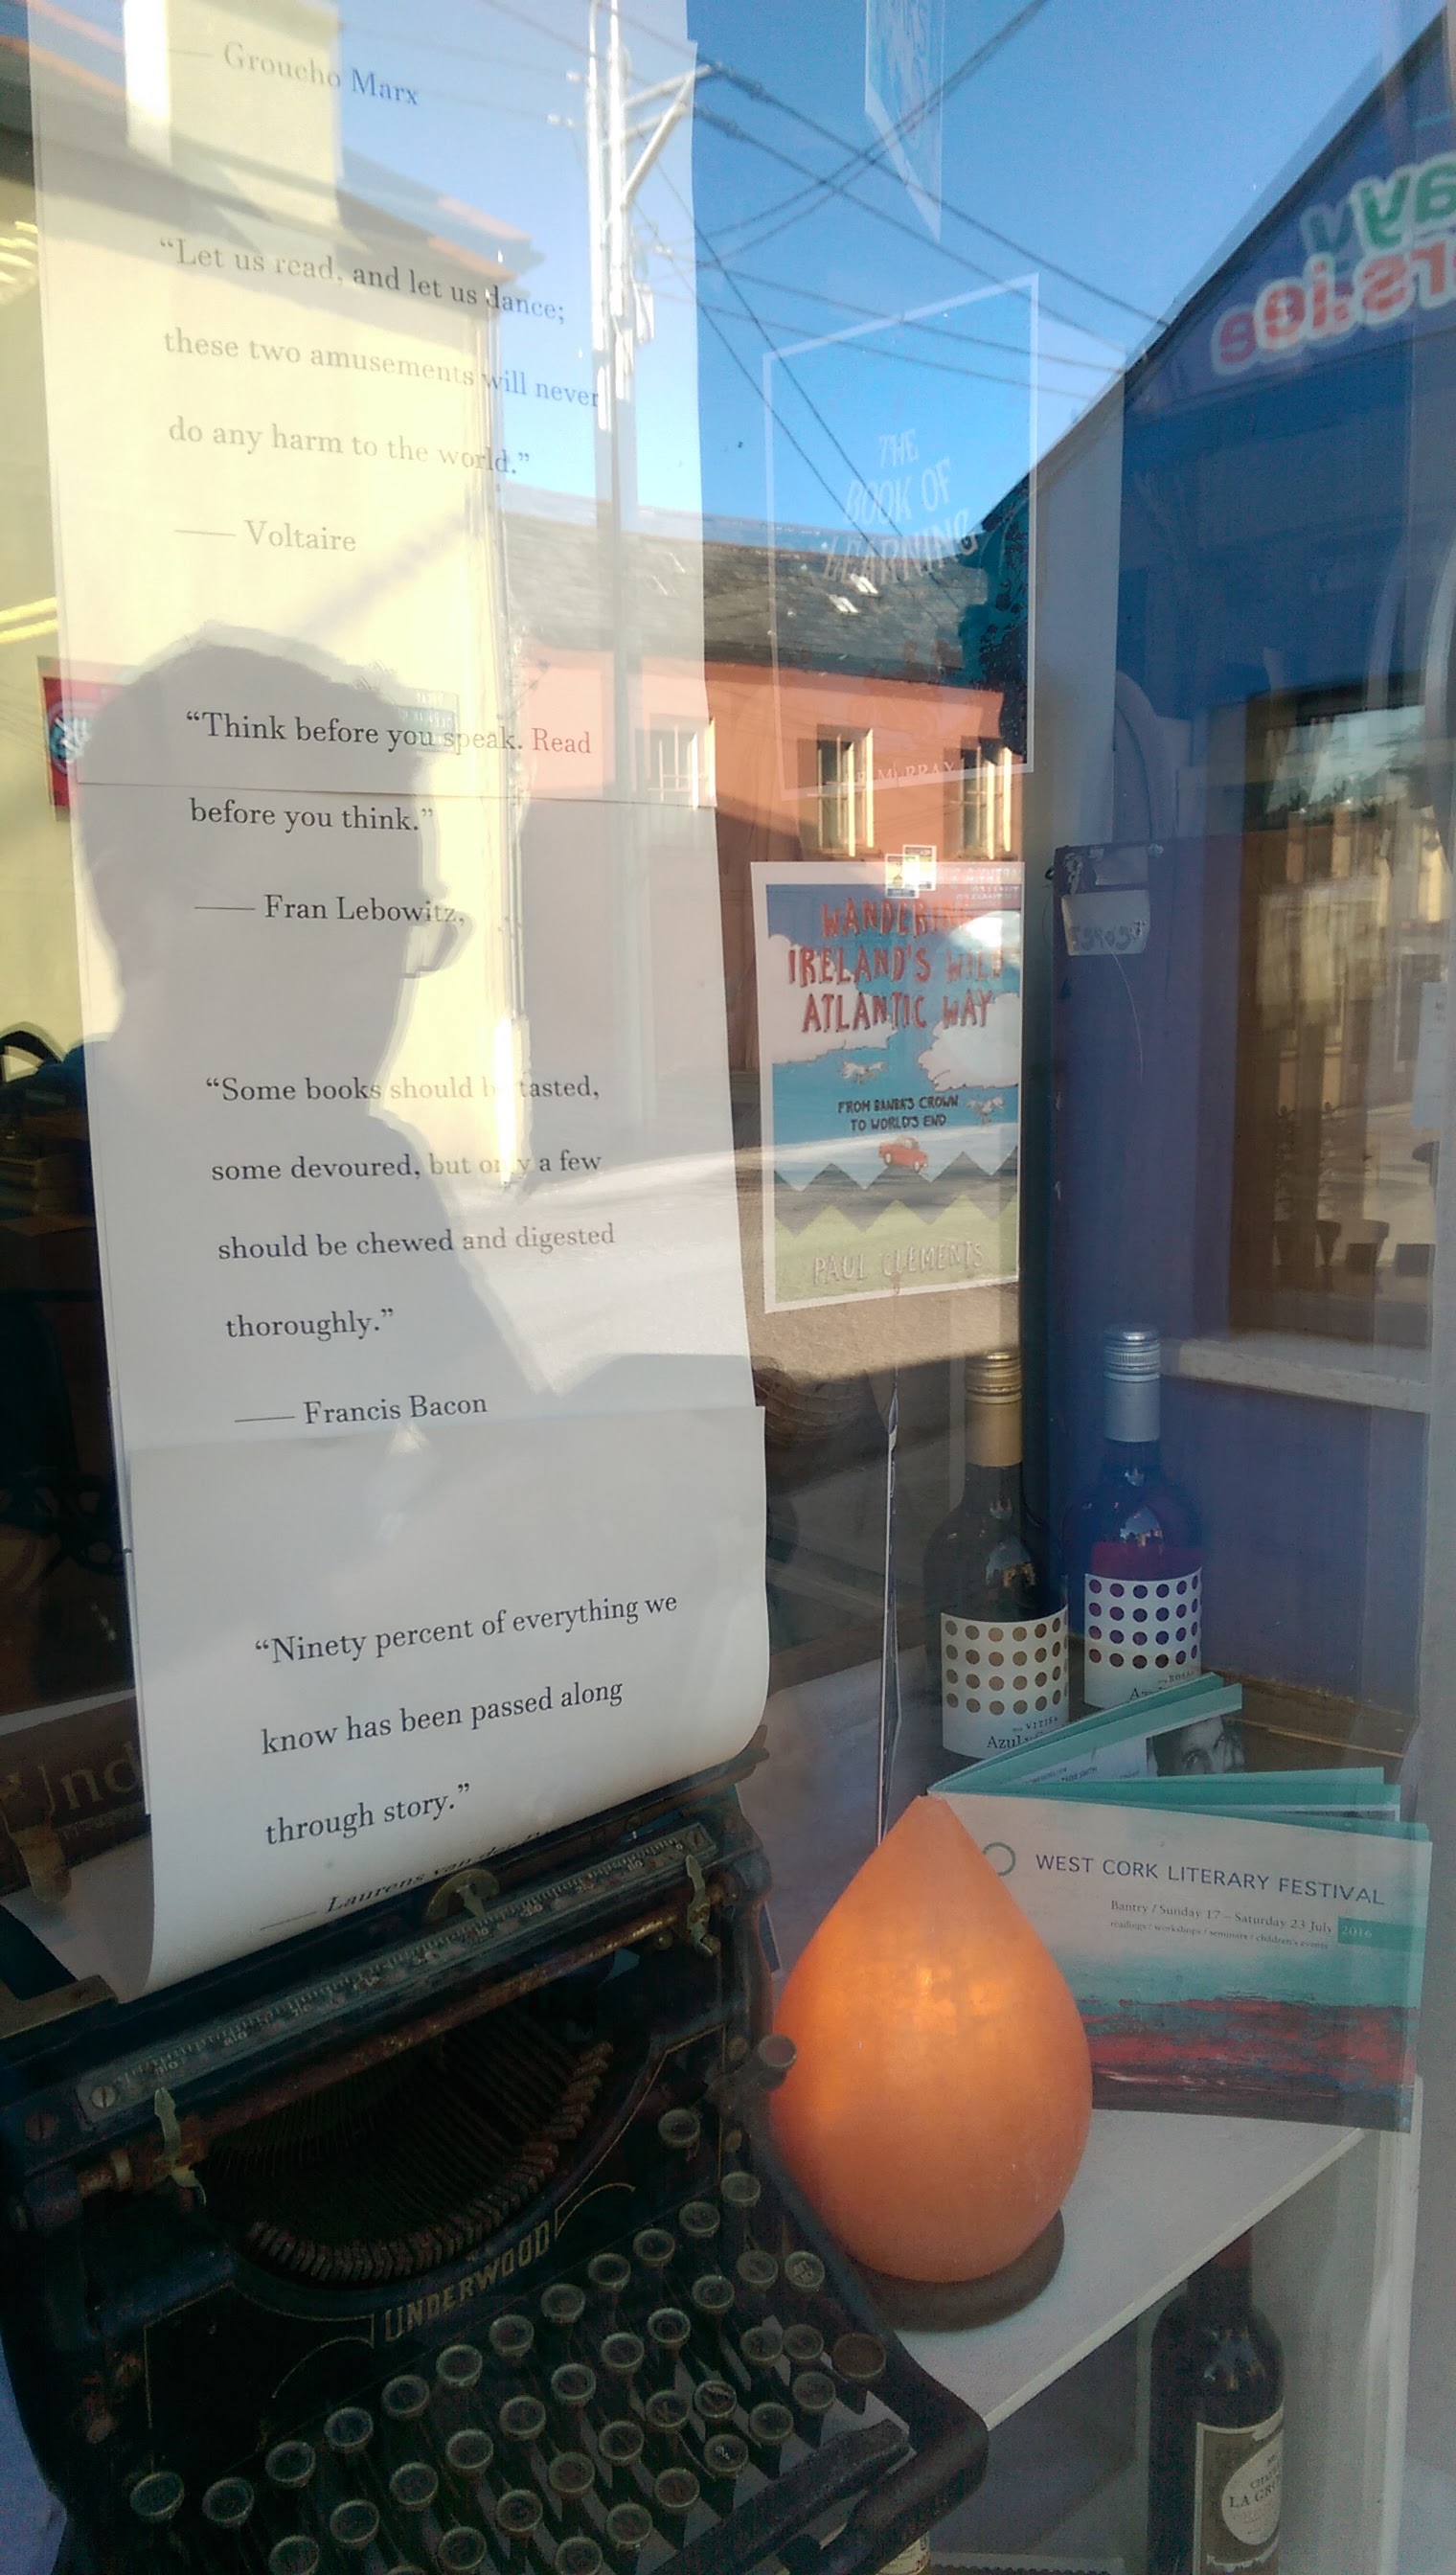 —— Groucho Marx
“Let us read, and let us dance;
these two amusements will never
do any harm to the world.”
—— Voltaire
“Think before you speak. Read
before you think.”
—— Fran Lebowitz,
“Some books should be tasted,
some devoured, but only a few
should be chewed and digested
thoroughly.”
—— Francis Bacon
“Ninety percent of everything we
know has been passed along
through story.”
—— Laurens van der
UNDERWOOD
THE
BOOK OF
LEARNING
MURRAY
WANDERING
IRELAND'S WILD
ATLANTIC WAY
FROM BANBA'S CROWN
TO WORLD'S END
PAUL CLEMENTS
WEST CORK LITERARY FESTIVAL
Bantry / Sunday 17 – Saturday 23 July 2016
readings / workshops / seminars / children's events
LA GR